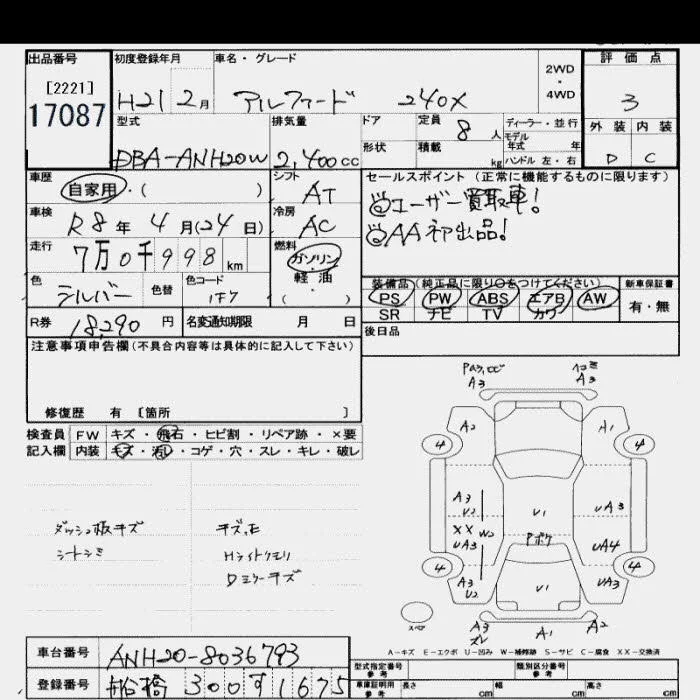 出品番号 初度登録年月 車名・グレード 2WD・4WD 評価点
[2221]
17087 H21 2月 アルファード 240X 3
型式 排気量 ドア 定員 8人 ディーラー・並行 外装 内装
モデル年式 年
DBA-ANH20W 2,400cc 形状 積載 kg ハンドル 左・右 D C
車歴 シフト セールスポイント (正常に機能するものに限ります)
自家用・( ) AT ◎ユーザー買取車!
車検 冷房 ◎AA初出品!
R8年 4月(24日) AC
走行 燃料
7万0千998km ガソリン・軽油・( )
色 色替 色コード 装備品(純正品に限り○をつけてください) 新車保証書
シルバー 1F7 PS PW ABS エアB AW 有・無
SR ナビ TV カワ
R券 18,290円 名変通知期限 月 日 後日品
注意事項申告欄(不具合内容等は具体的に記入して下さい)
修復歴 有 [箇所 ]
検査員 FW キズ・飛石・ヒビ割・リペア跡・×要
記入欄 内装 キズ・汚れ・コゲ・穴・スレ・キレ・破レ
ダッシュ板キズ キズ,E
シートシミ Hライトクモリ
Dミラーキズ
A3 A3
A2 A1
4 4
A3 U2 U1 UA3
XX W2 UA3 Pボケ UA4
4 4
A3 U2 U1 UA3
スペア A3 ズレ A1 A2
A-キズ E-エクボ U-凹み W-補修跡 S-サビ C-腐食 XX-交換済
車台番号 ANH20-8036793
型式指定番号 参考 類別区分番号 参考
登録番号 船橋 300す1675
車庫証明用 参考 長さ cm 幅 cm 高さ cm